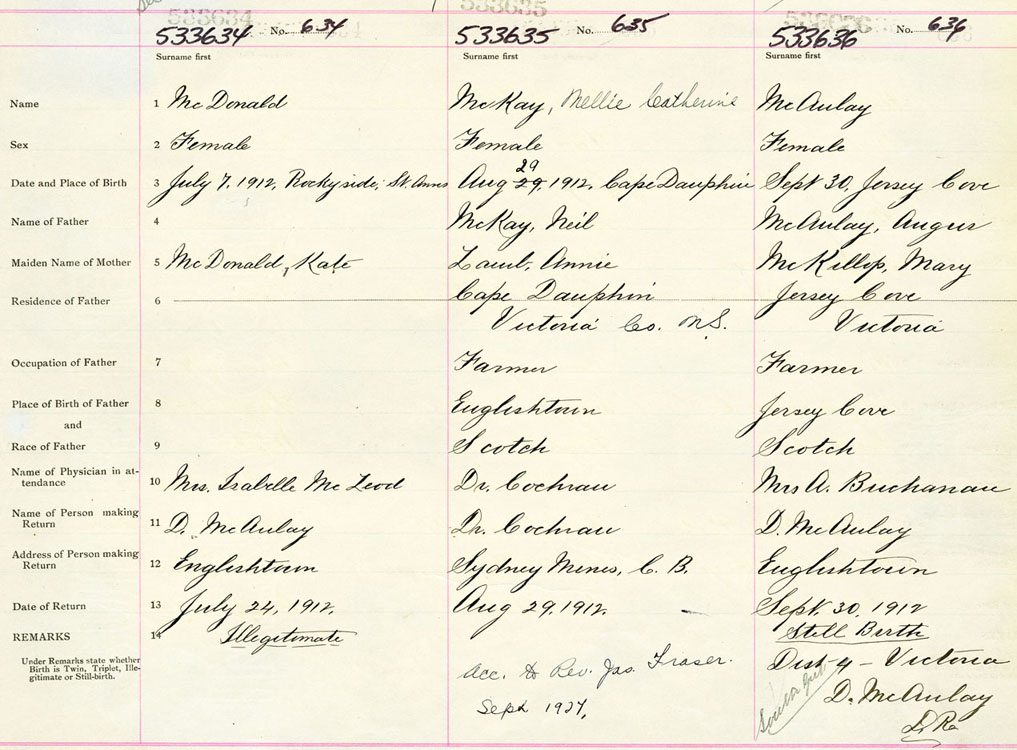 533634 No. 634 533635 No. 635 533636 No. 636
Surname first Surname first Surname first
Name 1 McDonald McKay, Mellie Catherine McAulay
Sex 2 Female Female Female
29
Date and Place of Birth 3 July 7, 1912, Rockyside, St. Anns Aug 29, 1912, Cape Dauphin Sept 30, Jersey Cove
Name of Father 4 McKay, Neil McAulay, Angus
Maiden Name of Mother 5 McDonald, Kate Annie McKillop, Mary
Residence of Father 6 Cape Dauphin Jersey Cove
Victoria Co. N.S. Victoria
Occupation of Father 7 Farmer Farmer
Place of Birth of Father 8 Englishtown Jersey Cove
and
Race of Father 9 Scotch Scotch
Name of Physician in at-
tendance 10 Mrs. Isabelle McLeod Dr. Cochran Mrs A. Buchanan
Name of Person making
Return 11 D. McAulay Dr. Cochran D. McAulay
Address of Person making
Return 12 Englishtown Sydney Mines, C. B. Englishtown
Date of Return 13 July 24, 1912, Aug 29, 1912. Sept. 30, 1912
REMARKS 14 Illegitimate Still Birth
Under Remarks state whether
Birth is Twin, Triplet, Ille-
gitimate or Still-birth.
Dist 4 - Victoria
acc. to Rev. Jas. Fraser.
D. McAulay
Sept 1927,